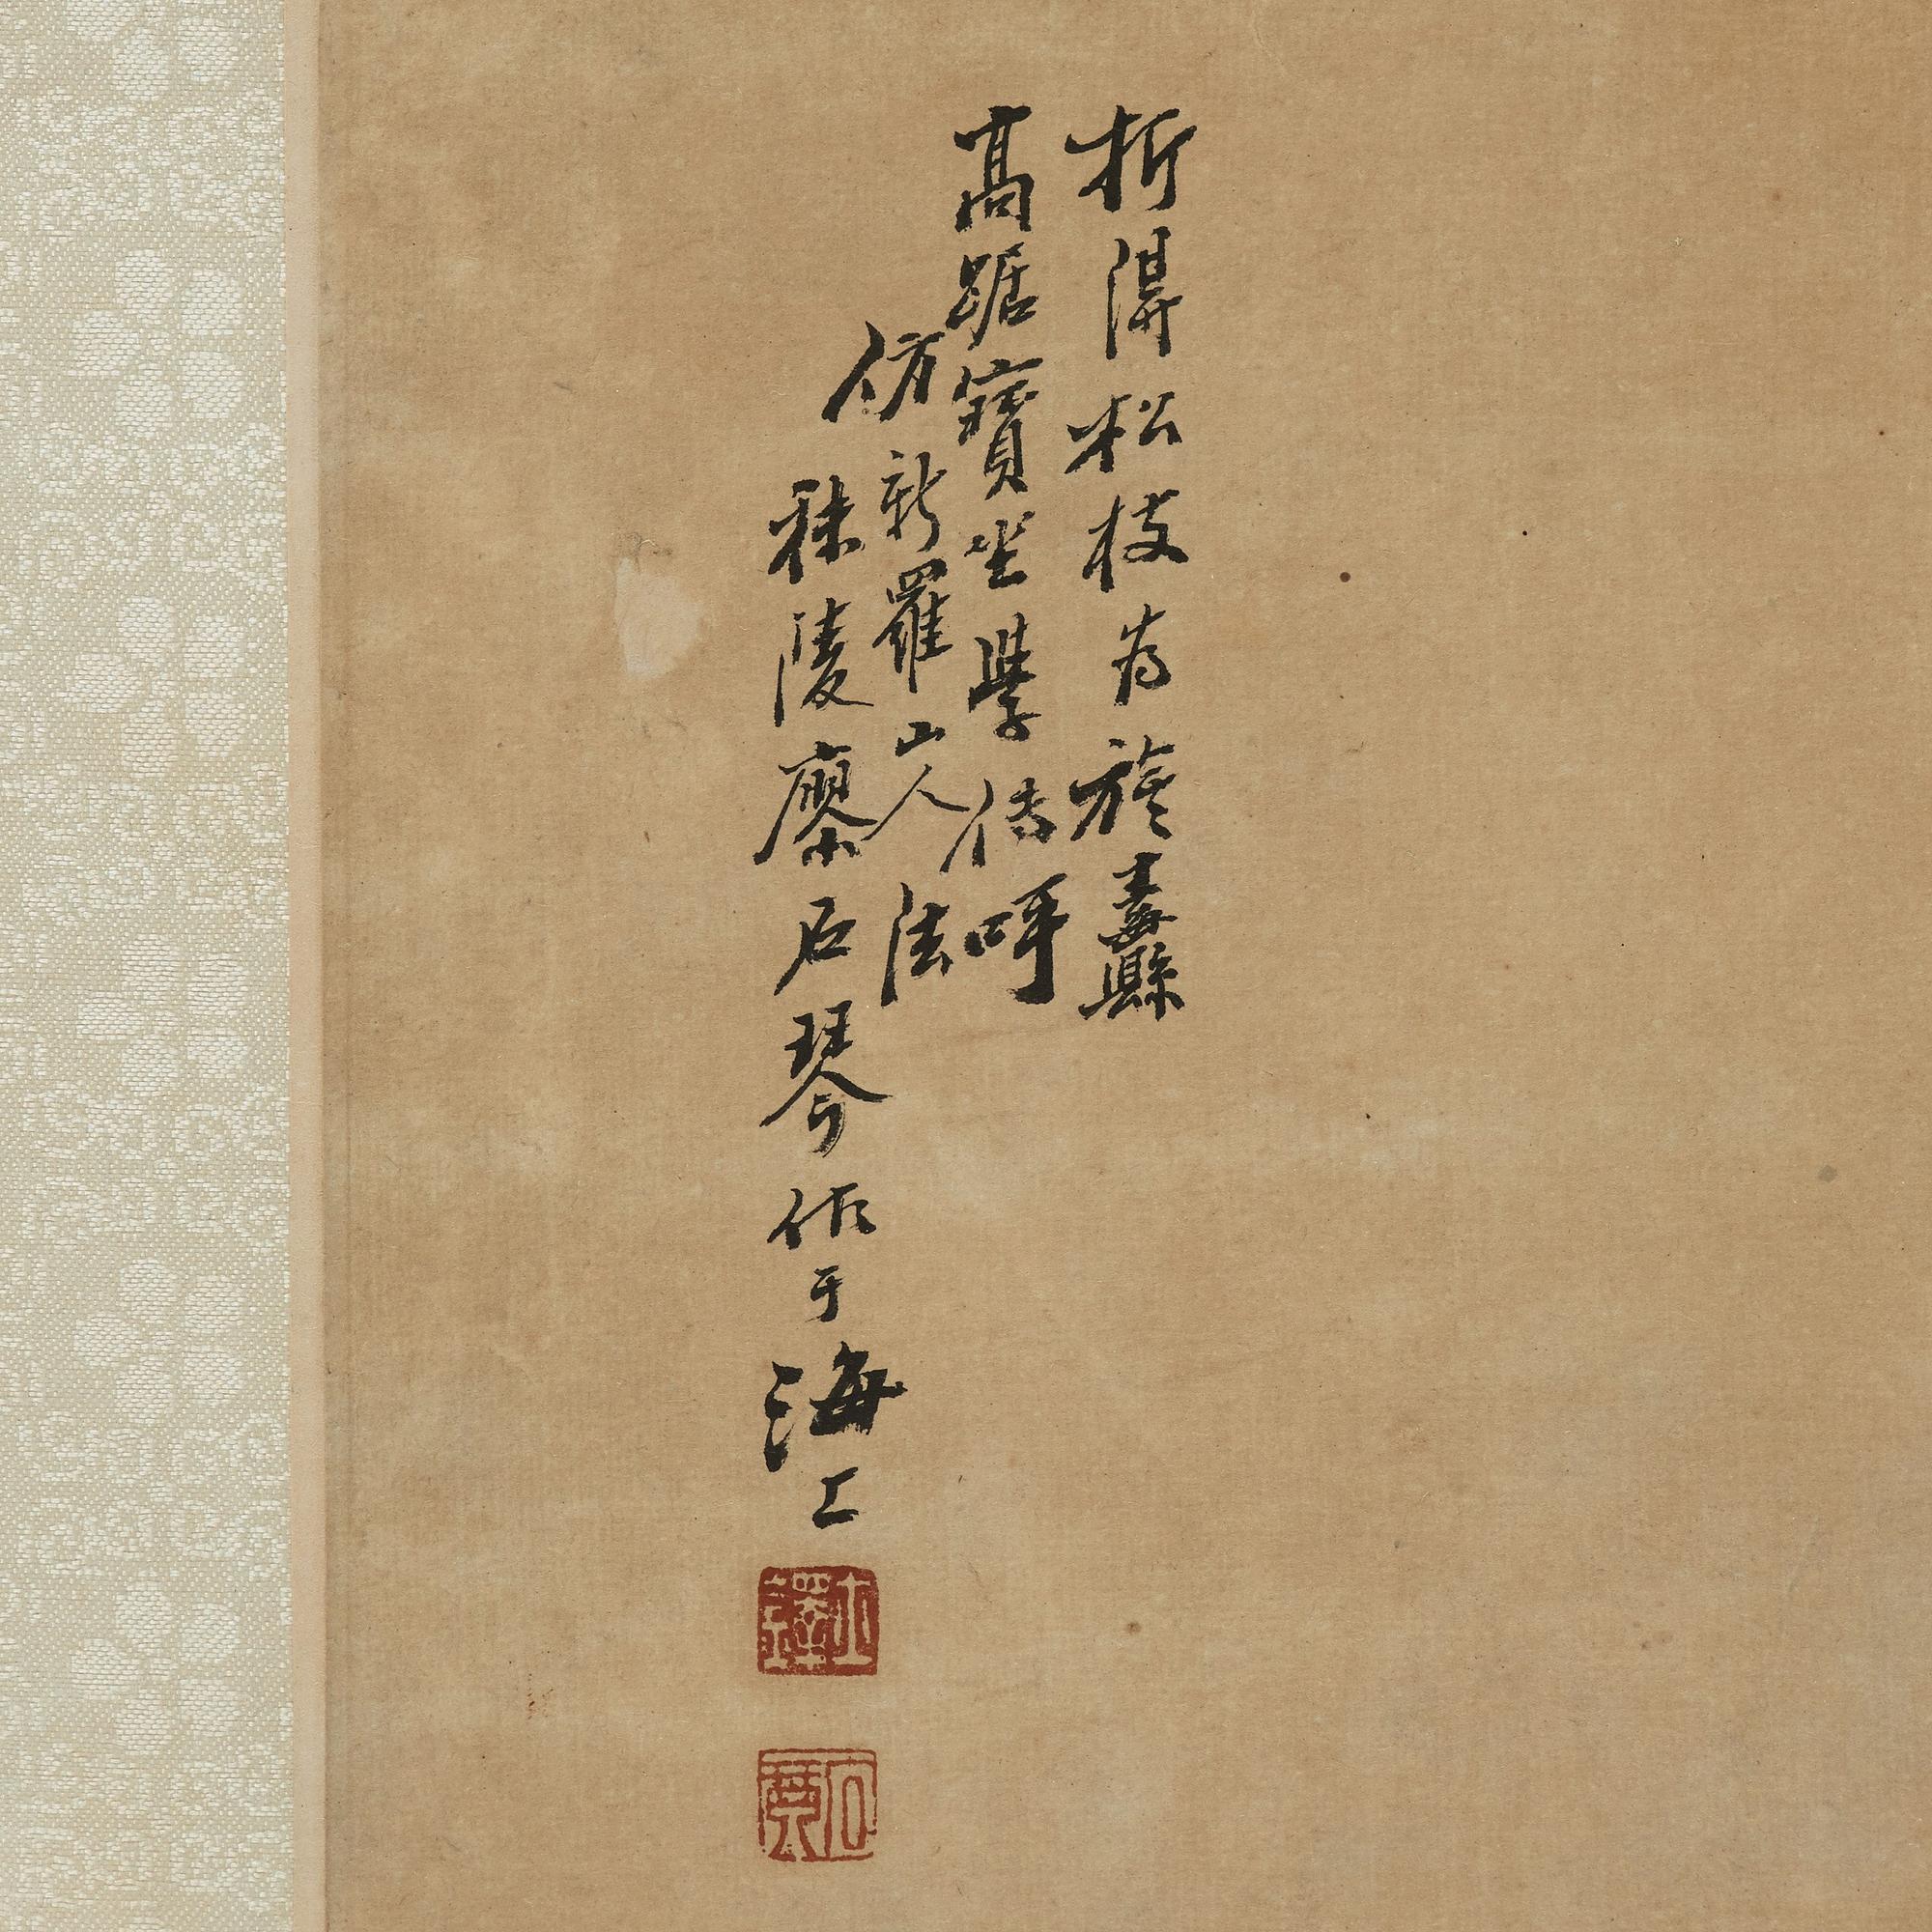 折得松枝為旌纛
高踞寶坐學傳呼
仿新羅山人法
秣陵廖石琴作于海上
石琴